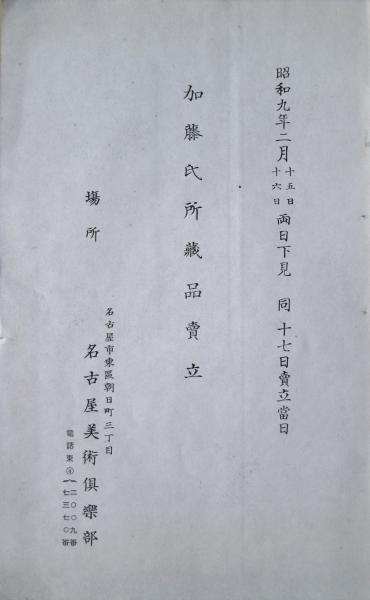 昭和九年二月十五日十六日両日下見 同十七日賣立當日
加藤氏所藏品賣立
場所
名古屋市東區朝日町三丁目
名古屋美術倶樂部
電話東④
一二〇〇九番
一七三七〇番